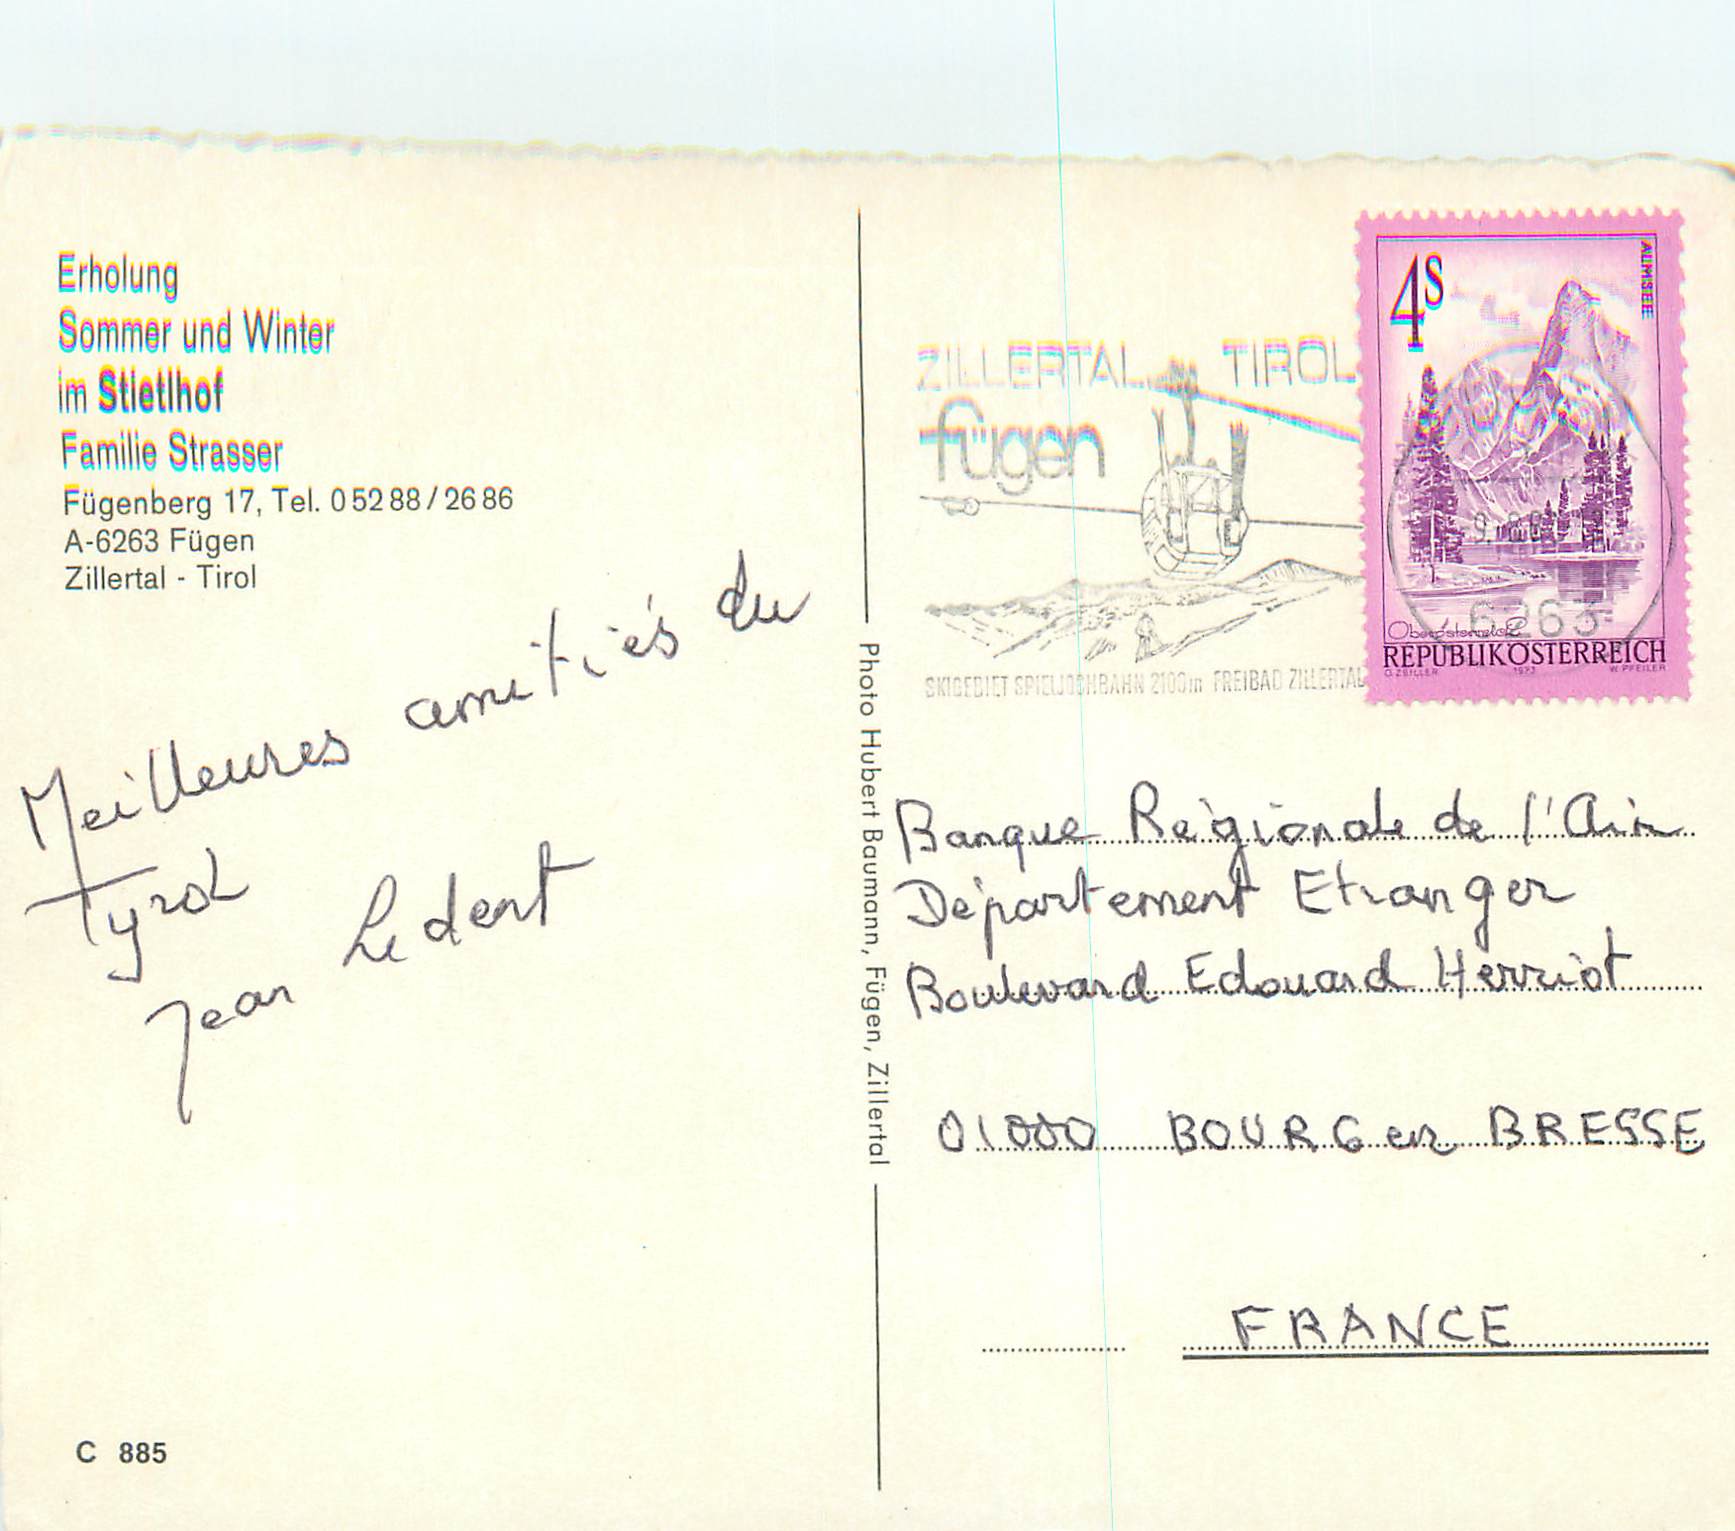 Erholung
Sommer und Winter
im Stietlhof
Familie Strasser
Fügenberg 17, Tel. 0 52 88 / 26 86
A-6263 Fügen
Zillertal - Tirol
Meilleures amitiés du
Tyrol
Jean Ledent
C 885
Photo Hubert Baumann, Fügen, Zillertal
ZILLERTAL TIROL
fügen
SKIGEBIET SPIELJOCHBAHN 2100m FREIBAD ZILLERTAL
4S
ALMSEE
6263
Oberösterreich
REPUBLIK ÖSTERREICH
O. ZEILLER 1973 W. PFEILER
Banque Régionale de l'Ain
Département Etranger
Boulevard Edouard Herriot
01000 BOURG en BRESSE
FRANCE